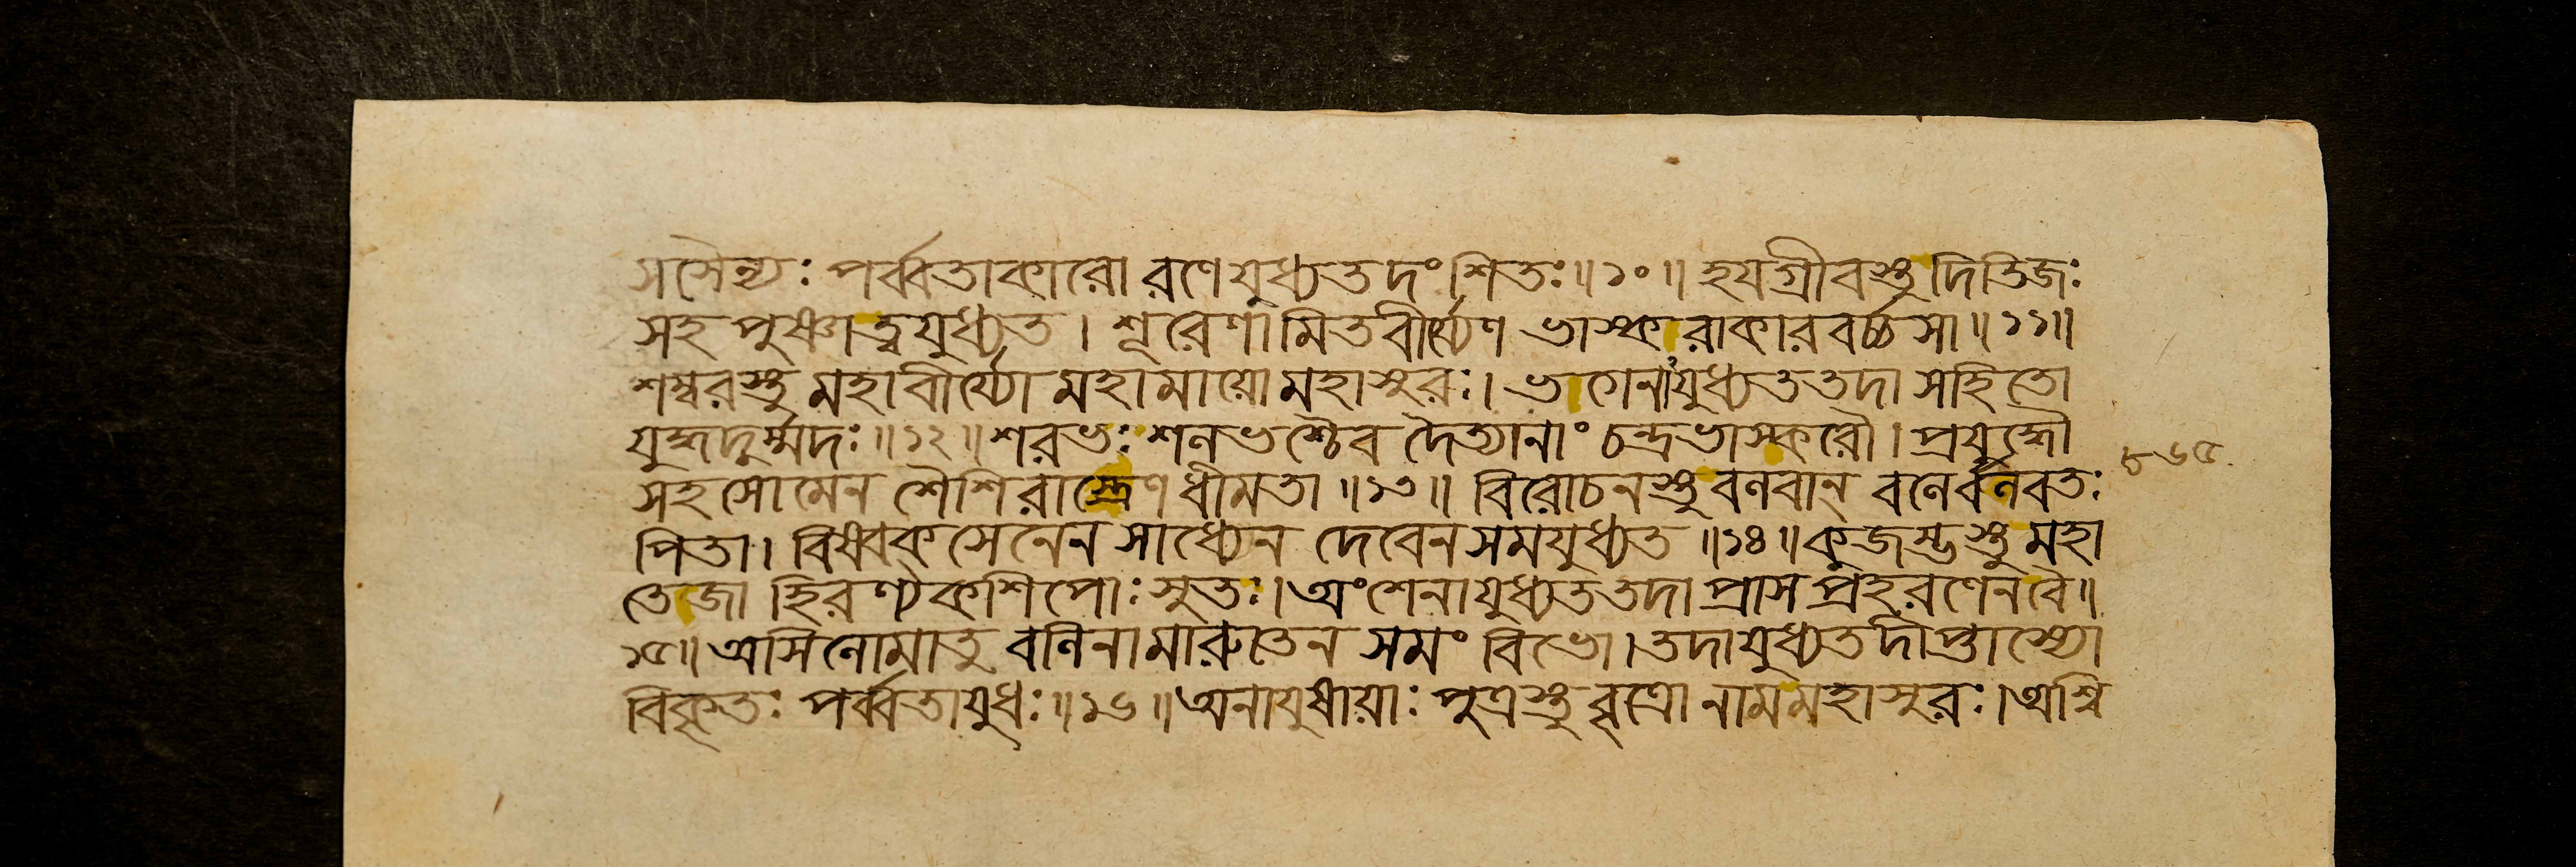 সসৈন্যঃ পর্ব্বতাকারো রণে যুধ্যত দংশিতঃ॥১০॥ হযগ্রীবস্তু দিতিজঃ
সহ পুষ্ণা ত্বযুধ্যত। শূরেণামিতবীর্য্যেণ ভাস্করাকারবর্চ্চসা॥১১॥
শম্বরস্তু মহাবীর্য্যো মহামায়ো মহাসুরঃ। ভগেনাযুধ্যত তদা সহিতো
যুদ্ধদুর্ম্মদঃ॥১২॥ শরভঃ শলভশ্চৈব দৈত্যানাং চন্দ্রভাস্করৌ। প্রযুদ্ধৌ
সহ সোমেন শৈশিরাস্ত্রেণ ধীমতা॥১৩॥ বিরোচনস্তু বলবান্ বলের্ব্বলবতঃ
পিতা। বিষ্বক্সেনেন সাধ্যেন দেবেন সমযুধ্যত॥১৪॥ কুজম্ভস্তু মহা
তেজা হিরণ্যকশিপোঃ সুতঃ। অংশেনাযুধ্যত তদা প্রাসপ্রহরণেন বৈ॥
১৫॥ অসিলোমা তু বলিনা মারুতেন সমং বিভো। তদাযুধ্যত দীপ্তাস্যো
বিকৃতঃ পর্ব্বতাযুধঃ॥১৬॥ অনাযুষায়াঃ পুত্রস্তু বৃত্রো নাম মহাসুরঃ। অশ্বি
৮৬৫